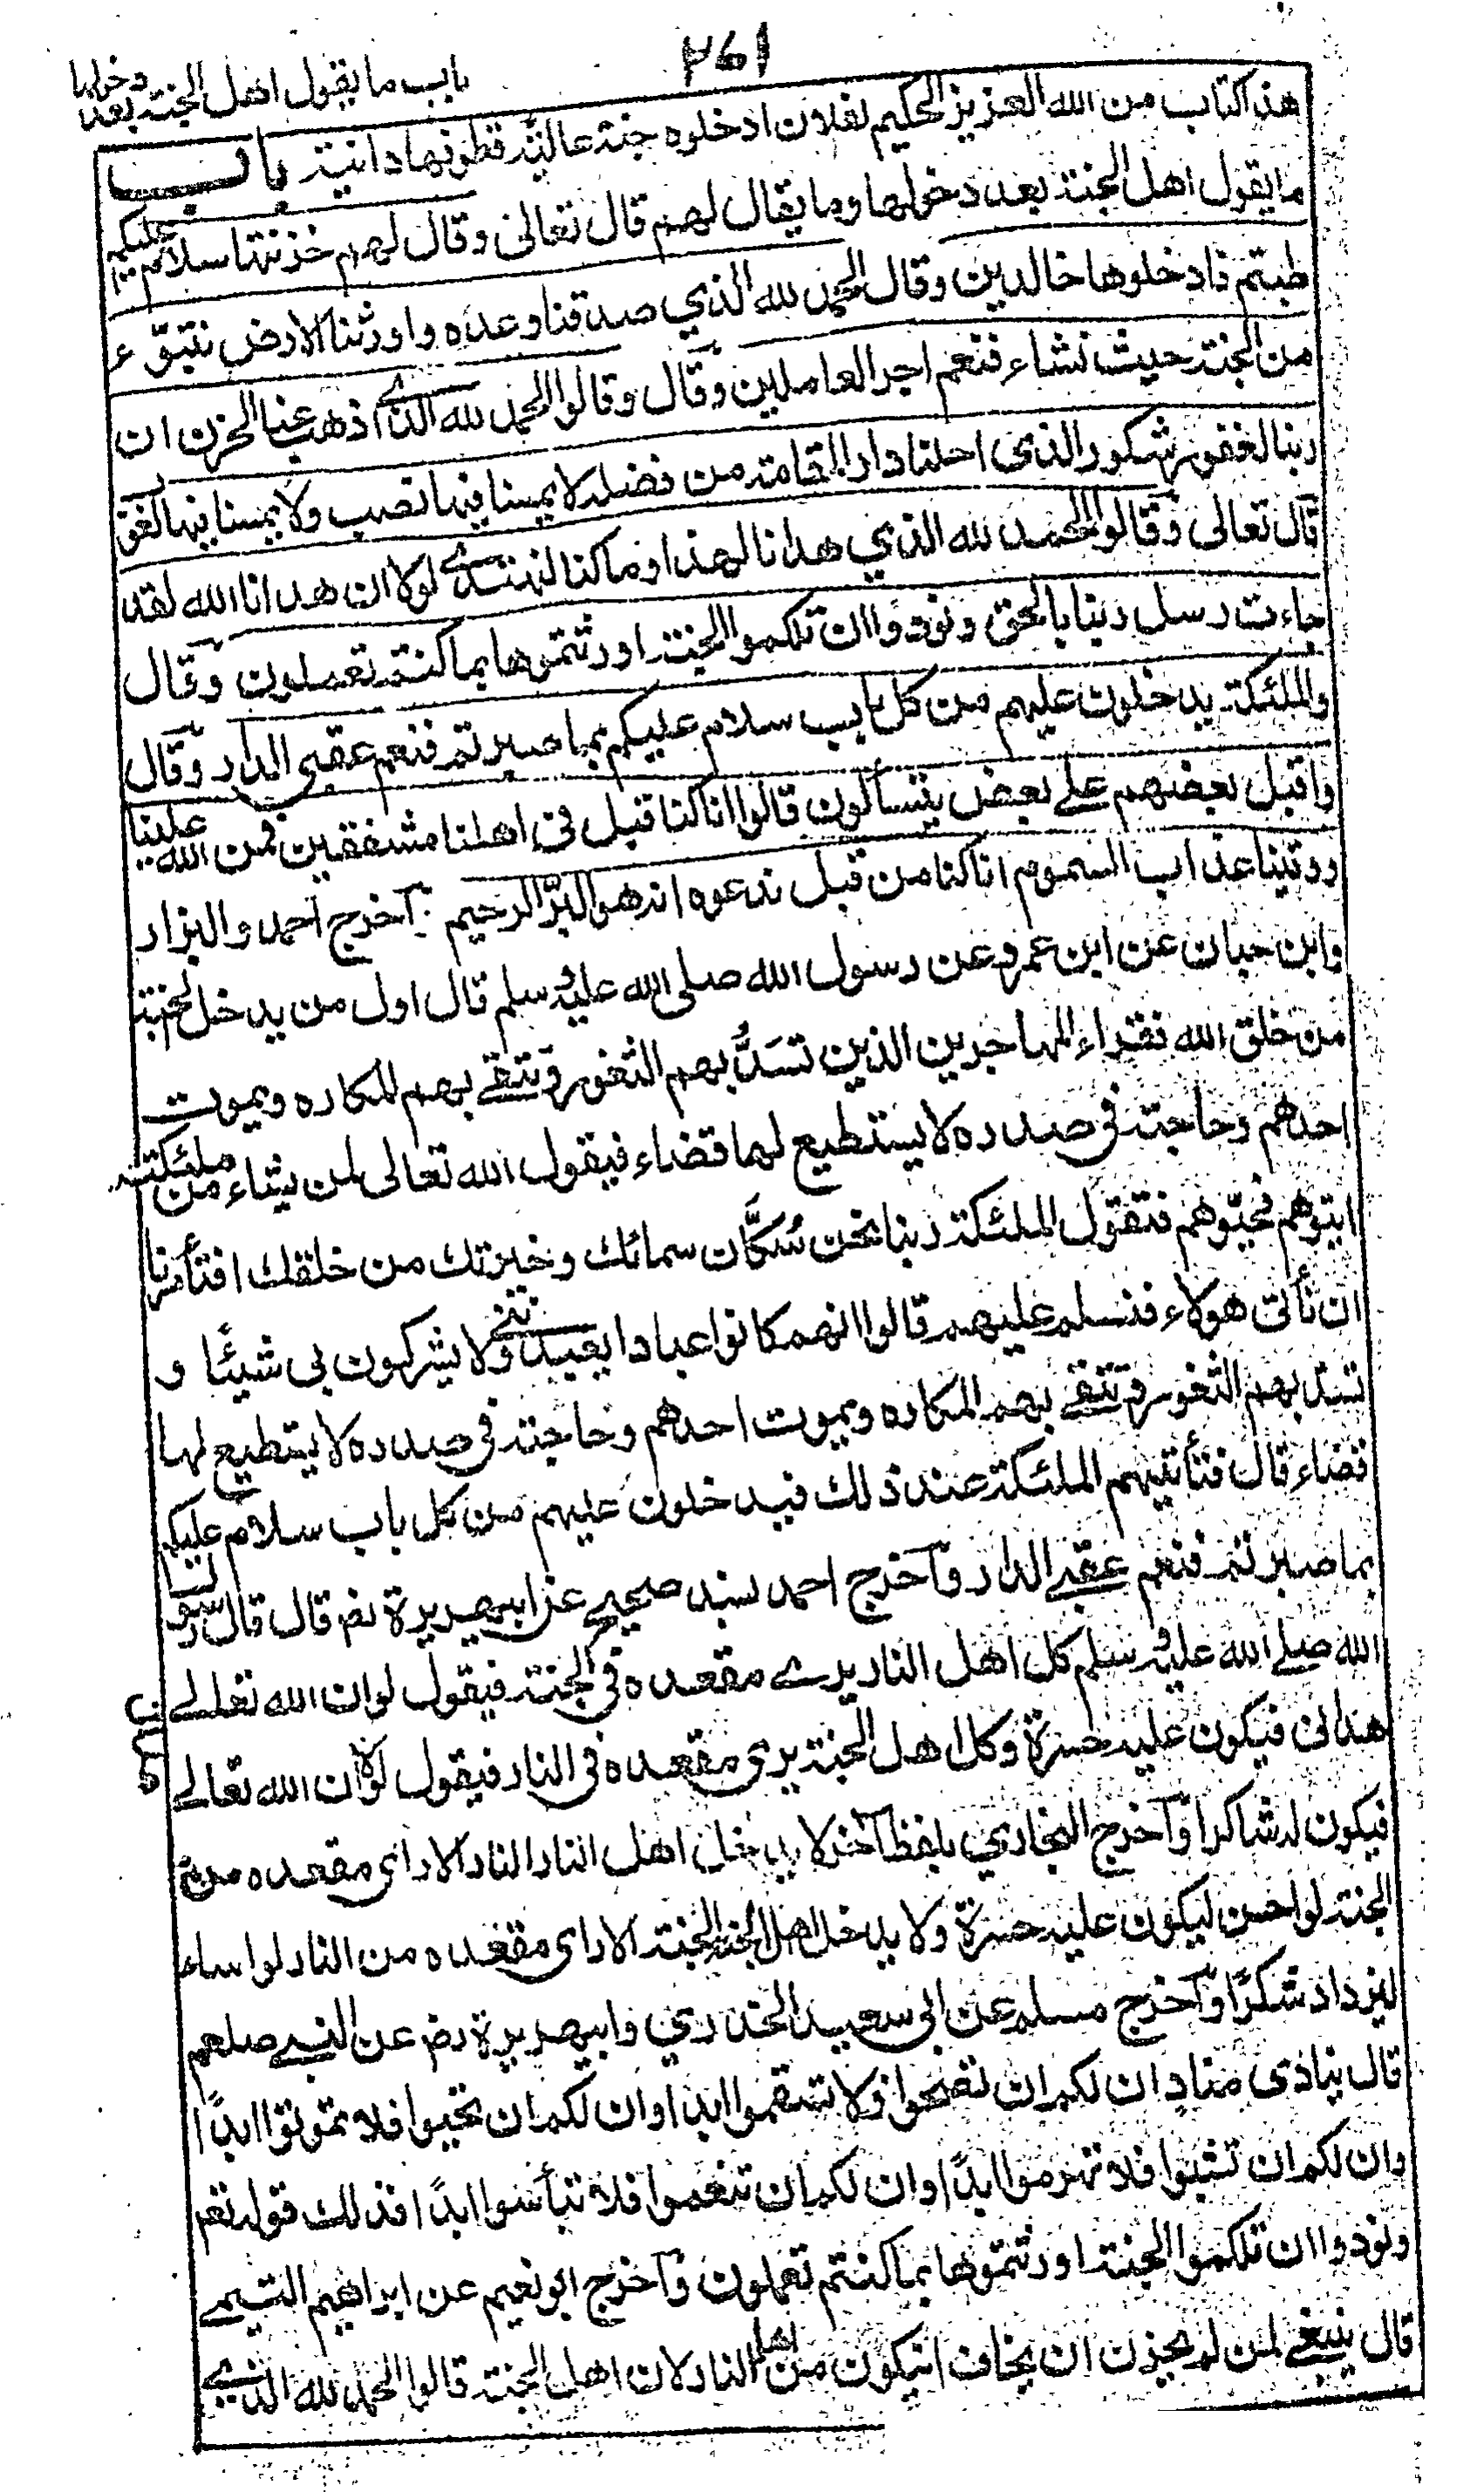 ٢٦١
باب ما يقول اهل الجنة بعد دخولها
هذا كتاب من الله العزيز الحكيم لفلان ادخلوه جنة عالية قطوفها دانية باب
ما يقول اهل الجنة بعد دخولها وما يقال لهم قال تعالى وقال لهم خزنتها سلام عليكم
طبتم فادخلوها خالدين وقال الحمد لله الذي صدقنا وعده واورثنا الارض نتبوّء
من الجنة حيث نشاء فنعم اجر العاملين وقال وقالوا الحمد لله الذي اذهب عنا الحزن ان
ربنا لغفور شكور الذي احلنا دار المقامة من فضله لا يمسنا فيها نصب ولا يمسنا فيها لغوب
قال تعالى وقالوا الحمد لله الذي هدانا لهذا وما كنا لنهتدي لولا ان هدانا الله لقد
جاءت رسل ربنا بالحق ونودوا ان تلكموا الجنة اورثتموها بما كنتم تعملون وقال
والملئكة يدخلون عليهم من كل باب سلام عليكم بما صبرتم فنعم عقبى الدار وقال
واقبل بعضهم على بعض يتسألون قالوا انا كنا قبل في اهلنا مشفقين فمن الله علينا
ووقينا عذاب السموم انا كنا من قبل ندعوه انه هو البرّ الرحيم اخرج احمد والبزار
وابن حبان عن ابن عمرو عن رسول الله صلى الله عليه وسلم قال اول من يدخل الجنة
من خلق الله فقراء المهاجرين الذين تسدُّ بهم الثغور وتتقى بهم المكاره ويموت
احدهم وحاجته في صدره لا يستطيع لها قضاء فيقول الله تعالى لمن يشاء من ملئكته
ايتوهم فحيّوهم فتقول الملئكة ربنا نحن سُكَّان سمائك وخيرتك من خلقك افتأمرنا
ان نأتى هولاء فنسلم عليهم قالوا انهم كانوا عبادا يعبدوني ولا يشركون بى شيئًا و
تسد بهم الثغور وتتقى بهم المكاره ويموت احدهم وحاجته في صدره لا يستطيع لها
قضاء قال فتأتيهم الملئكة عند ذلك فيدخلون عليهم من كل باب سلام عليكم
بما صبرتم فنعم عقبى الدار واخرج احمد بسند صحيح عن ابيهريرة رض قال قال رسول
الله صلى الله عليه وسلم كل اهل النار يرى مقعده في الجنة فيقول لو ان الله تعالى
هدانى فيكون عليه حسرة وكل اهل الجنة يرى مقعده في النار فيقول لولا ان الله تعالى
فيكون له شاكرا واخرج البخاري بلفظ آخر لا يدخل اهل النار النار الا راى مقعده من
الجنة لو احسن ليكون عليه حسرة ولا يدخل اهل الجنة الجنة الا راى مقعده من النار لو اساء
ليزداد شكرًا واخرج مسلم عن ابى سعيد الخدري وابيهريرة رض عن النبي صلعم
قال ينادى منادٍ ان لكم ان تصحوا ولا تسقموا ابدا وان لكم ان تحيوا فلا تموتوا ابدًا
وان لكم ان تشبوا فلا تهرموا ابدًا وان لكم ان تنعموا فلا تبأسوا ابدًا فذلك قوله تعم
ونودوا ان تلكموا الجنة اورثتموها بما كنتم تعملون واخرج ابو نعيم عن ابراهيم التيمي
قال ينبغي لمن لم يحزن ان يخاف ان يكون من اهل النار لان اهل الجنة قالوا الحمد لله الذي